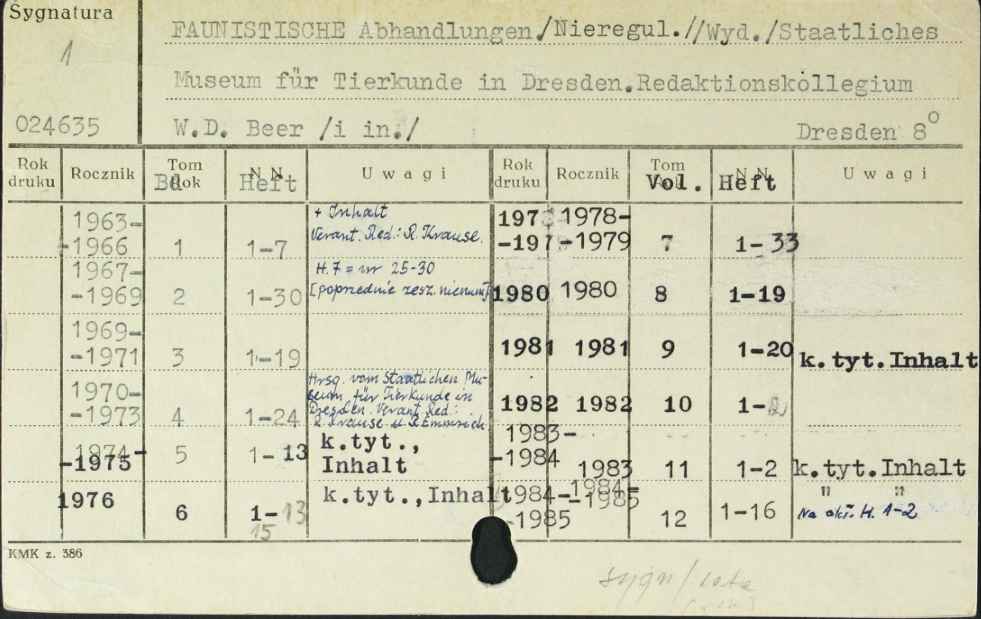 Sygnatura
1
024635
FAUNISTISCHE Abhandlungen./Nieregul.//Wyd./Staatliches
Museum für Tierkunde in Dresden.Redaktionskollegium
W.D. Beer /i in./
Dresden 8°
Rok druku Rocznik Tom Rok Bd N N Heft Uwagi Rok druku Rocznik Tom Vol. N N Heft Uwagi
1963-
-1966 1 1-7
+ Inhalt
Verant. Red.: R. Krause.
1967-
-1969 2 1-30
H.7 = nr 25-30
[poprzednie zesz. nienum]
1969-
-1971 3 1-19
1970-
-1973 4 1-24
Hrsg. vom Staatlichen Mu-
seum für Tierkunde in
Dresden. Verant. Red.:
R. Krause u. R. Emmrich
1974-
-1975 5 1-13
k.tyt.,
Inhalt
1976 6 1-13
15
k.tyt.,Inhalt
197 1978-
-197 -1979 7 1-33
1980 1980 8 1-19
1981 1981 9 1-20 k.tyt.Inhalt
1982 1982 10 1-
1983-
-1984 1983 11 1-2 k.tyt.Inhalt
1984- 1984-
-1985 -1985 12 1-16 " "
Na okł. H. 1-2
KMK z. 386
sygn/